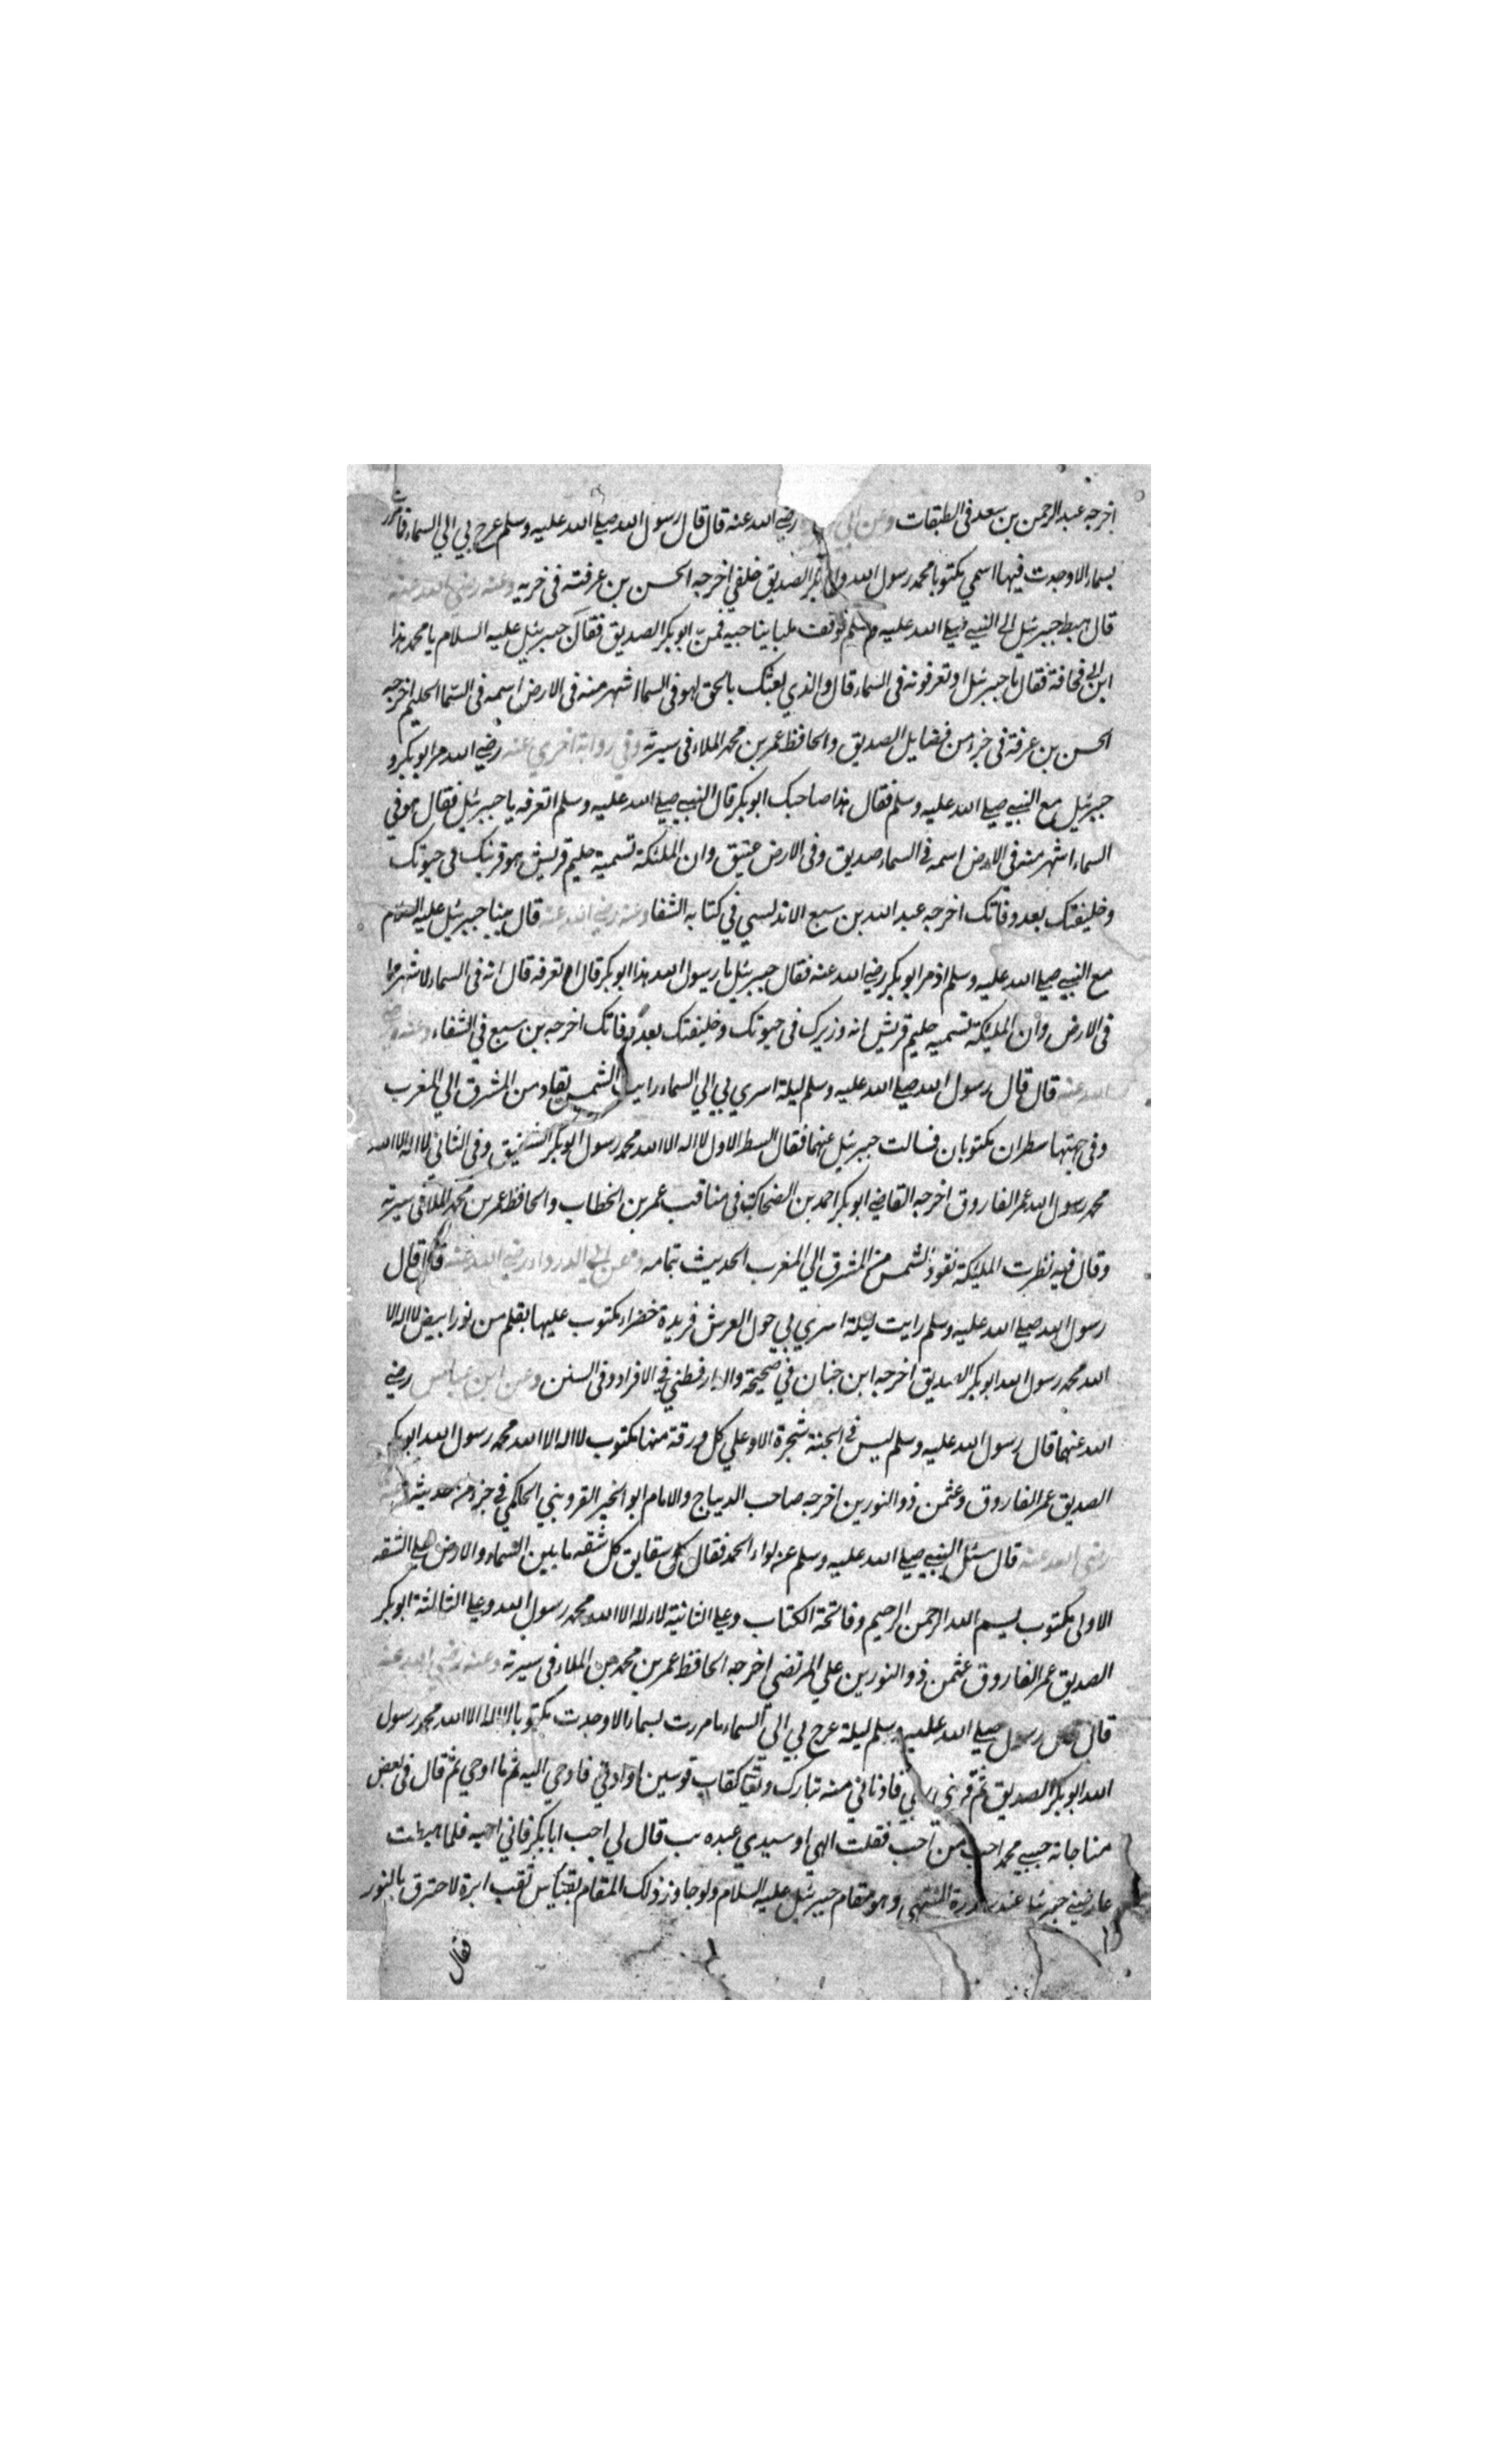 اخرجه عبد الرحمن بن سعد فى الطبقات وعن ابي رضي الله عنه قال قال رسول الله صلي الله عليه وسلم عرج بي الي السماء فما مررت
بسماء الا وجدت فيها اسمي مكتوبا محمد رسول الله وابو بكر الصديق خلفي اخرجه الحسن بن عرفة فى وعنه رضي الله عنه
قال هبط جبرئيل الى النبي صلي الله عليه وسلم فوقف مليا يناجيه فمر ابو بكر الصديق فقال جبرئيل عليه السلام يا محمد هذا
ابن ابي قحافة فقال يا جبرئيل او تعرفونه فى السماء قال والذي بعثك بالحق لهو فى السما اشهر منه فى الارض اسمه فى السما الحليم اخرجه
الحسن بن عرفة فى جزء من فضايل الصديق والحافظ عمر بن محمد الملاء فى سيرته وفي رواية اخري عنه رضي الله مر ابو بكر و
جبرئيل مع النبي صلي الله عليه وسلم فقال هذا صاحبك ابو بكر قال النبي صلي الله عليه وسلم اتعرفه يا جبرئيل فقال هو في
السماء اشهر منه في الارض اسمه في السماء صديق وفى الارض عتيق وان الملئكة تسمية حليم قريش هو قرينك فى حيوتك
وخليفتك بعد وفاتك اخرجه عبد الله بن سبع الاندلسي في كتابه الشفا وعنه رضي الله عنه قال بينا جبرئيل عليه السلام
مع النبي صلي الله عليه وسلم اذ مر ابو بكر رضي الله عنه فقال جبرئيل يا رسول الله هذا ابو بكر قال تعرفه قال انه فى السماء لاشهر
فى الارض وان المليكة تسميه حليم قريش انه وزيرك فى حيوتك وخليفتك بعد وفاتك اخرجه بن سبع في الشفاء وعنه رضي
الله عنه قال قال رسول الله صلي الله عليه وسلم ليلة اسري بي الي السماء رايت الشمس تقاد من المشرق الي المغرب
وفى جبهتها سطران مكتوبان فسالت جبرئيل عنهما فقال السطر الاول لا اله الا الله محمد رسول ابو بكر الصديق وفى الثاني لا اله الا الله
محمد رسول الله عمر الفاروق اخرجه القاضي ابو بكر احمد بن الضحاك فى مناقب عمر بن الخطاب والحافظ عمر بن محمد الملا فى سيرته
وقال فيه نظرت المليكة تقود الشمس من المشرق الي المغرب الحديث بتمامه وعن ابي الدرداء رضي الله عنه قال قال
رسول الله صلي الله عليه وسلم رايت ليلة اسري بي حول العرش فريدة خضراء مكتوب عليها بقلم من نور ابيض لا اله الا
الله محمد رسول الله ابو بكر الصديق اخرجه ابن حبان في صحيحة والدارقطني في الافراد وفى السنن وعن ابن عباس رضي
الله عنهما قال رسول الله عليه وسلم ليس في الجنة شجرة الا وعلي كل ورقة منها مكتوب لا اله الا الله محمد رسول الله ابو بكر
الصديق عمر الفاروق وعثمن ذو النورين اخرجه صاحب الديباج والامام ابو الخير القزويني الحاكمي في جزء من حديثه
رضي الله عنه قال سئل النبي صلي الله عليه وسلم عن لواء الحمد فقال شقايق كل شقه ما بين السماء والارض علي الشقه
الاولى مكتوب بسم الله الرحمن الرحيم وفاتحة الكتاب وعلي الثانية لا اله الا الله محمد رسول الله وعلي الثالثة ابو بكر
الصديق عمر الفاروق عثمن ذو النورين علي المرتضي اخرجه الحافظ عمر بن محمد بن الملاء فى سيرته وعنه رضي الله عنه
قال رسول صلي الله عليه وسلم ليلة عرج بي الي السماء ما مررت بسماء الا وجدت مكتوبا لا اله الا الله محمد رسول
الله ابو بكر الصديق ثم قربني ربي فادناني منه تبارك وتعا كقاب قوسين او ادني فاوحي اليه ثم ما اوحي ثم قال فى بعض
مناجاته حبيبي محمد احب من احب فقلت الهي وسيدي قال لي احب ابا بكر فاني احبه فلما هبطت
عارضني جبرئيل عند سدرة المنتهي وهو مقام جبرئيل عليه السلام ولو جاوز ذلك المقام بقياس ثقب ابرة لاحترق بالنور
فقال